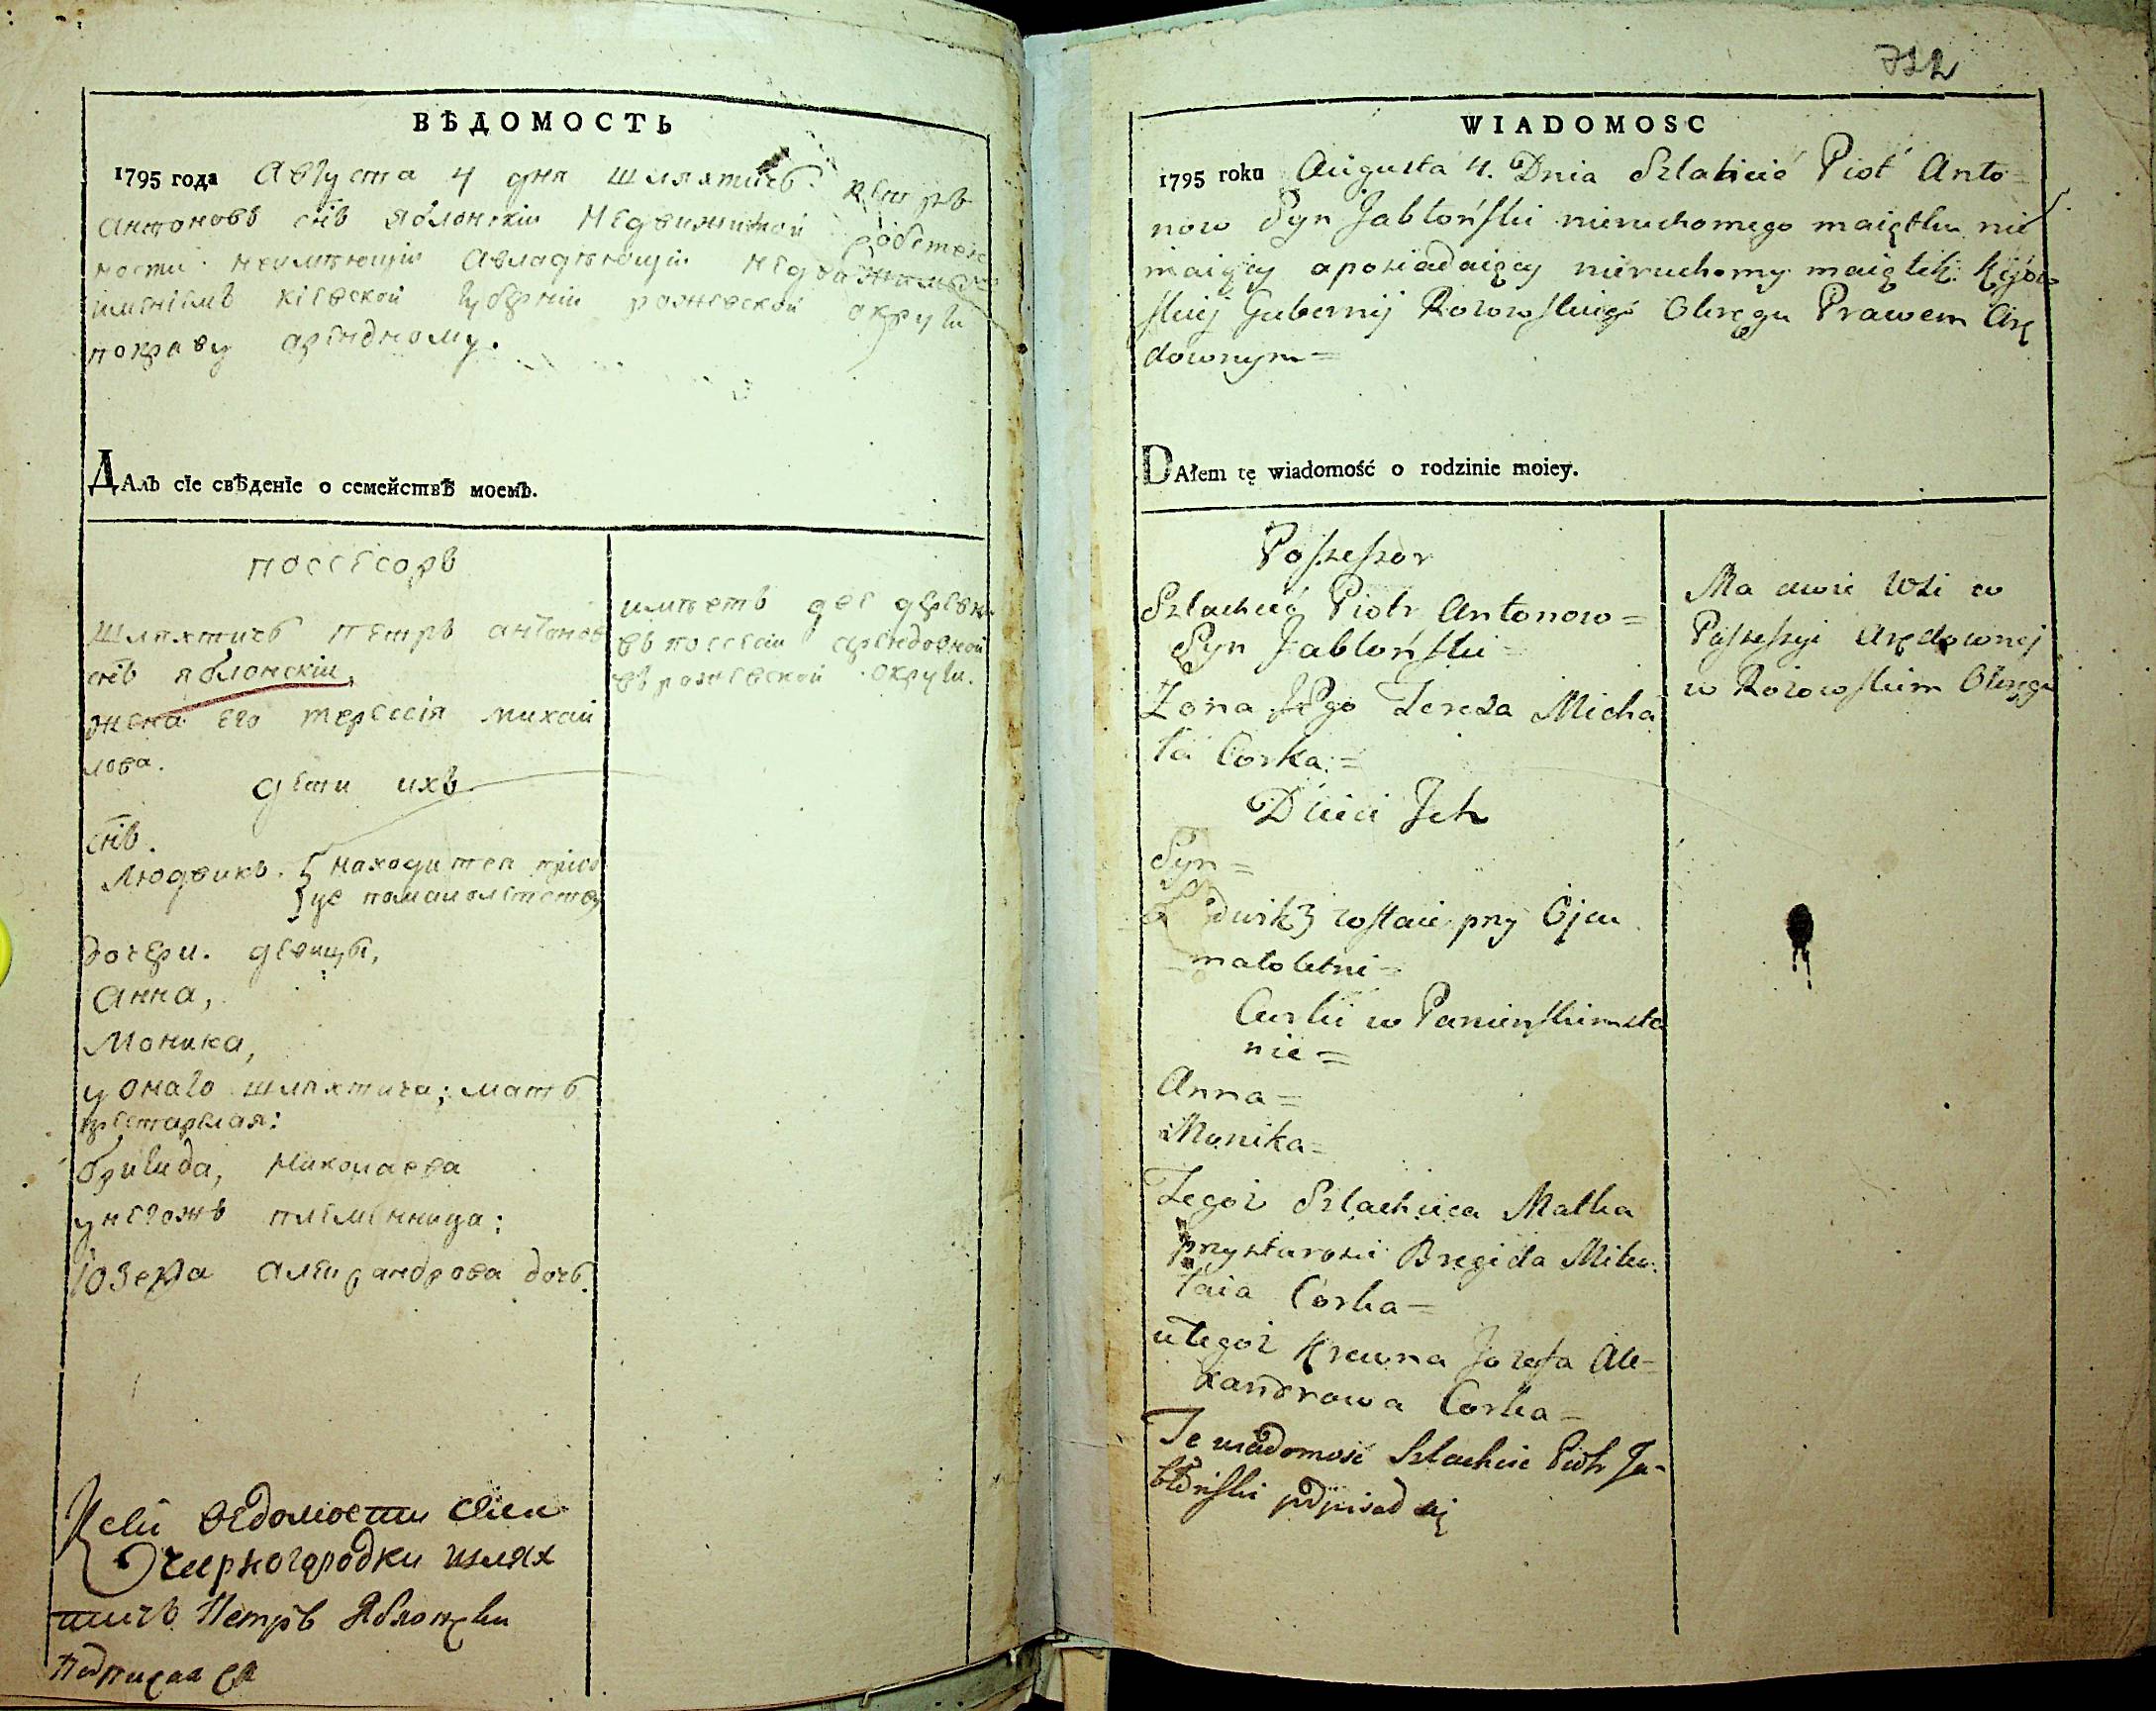 ВѢДОМОСТЬ
1795 года Августа 4 дня шляхтичь Петръ
Антоновъ снъ яблонскiи Недвижимой собствен
ности неимѣющiи Авладѣющiи недвижимымъ
имѣнiемъ кiевской губернiи рожевской округи
поправу арендному.
Далъ сїе свѣденїе о семействѣ моемъ.
поссесоръ
Шляхтичь Петръ антонов
снъ яблонскiи,
жена его терессiя михаи
лова.
дети ихъ
снъ.
Людвикъ. находится при
по малолетству
дочери. девицы,
Анна,
Моника,
у онаго шляхтича; мать
престарелая:
бригида, Николаева
унегожъ племѣнница:
Юзефа Александрова дочь.
имѣетъ две деревни
въ поссесiи арендовной
въ рожевской округи.
К сей ведомости села
Черногородки шлях
тичъ Петръ Яблонски
подписался
712
WIADOMOSC
1795 roku Augusta 4. Dnia Szlahcić Piotr Anto=
now Syn Jabłoński nieruchomego maiątku nie
maiący aposiadaiący nieruchomy maiątek Kijow
skiej Gubernij Rozowskiego Okręgu Prawem Arę
downym=
DAłem tę wiadomość o rodzinie moiey.
Possessor
Szlachcić Piotr Antonow=
Syn Jabłoński=
Zona Jego Tereza Micha
ła Corka=
Dzieci Ich
Syn=
dwik zostaie przy Ojcu
małoletni=
Curki w Panienskim sta
nie=
Anna=
Monika=
Tegoż Szlachcica Matka
przystarości Bregida Miko
łaia Corka=
u Tegoż Krewna Jozefa Ale=
xandrowa Corka=
Te wiadomość Szlachcic Piotr Ja=
błoński podpisał się
Ma dwie Wsi w
Possessyi Arędownej
w Rozowskim Okręgu